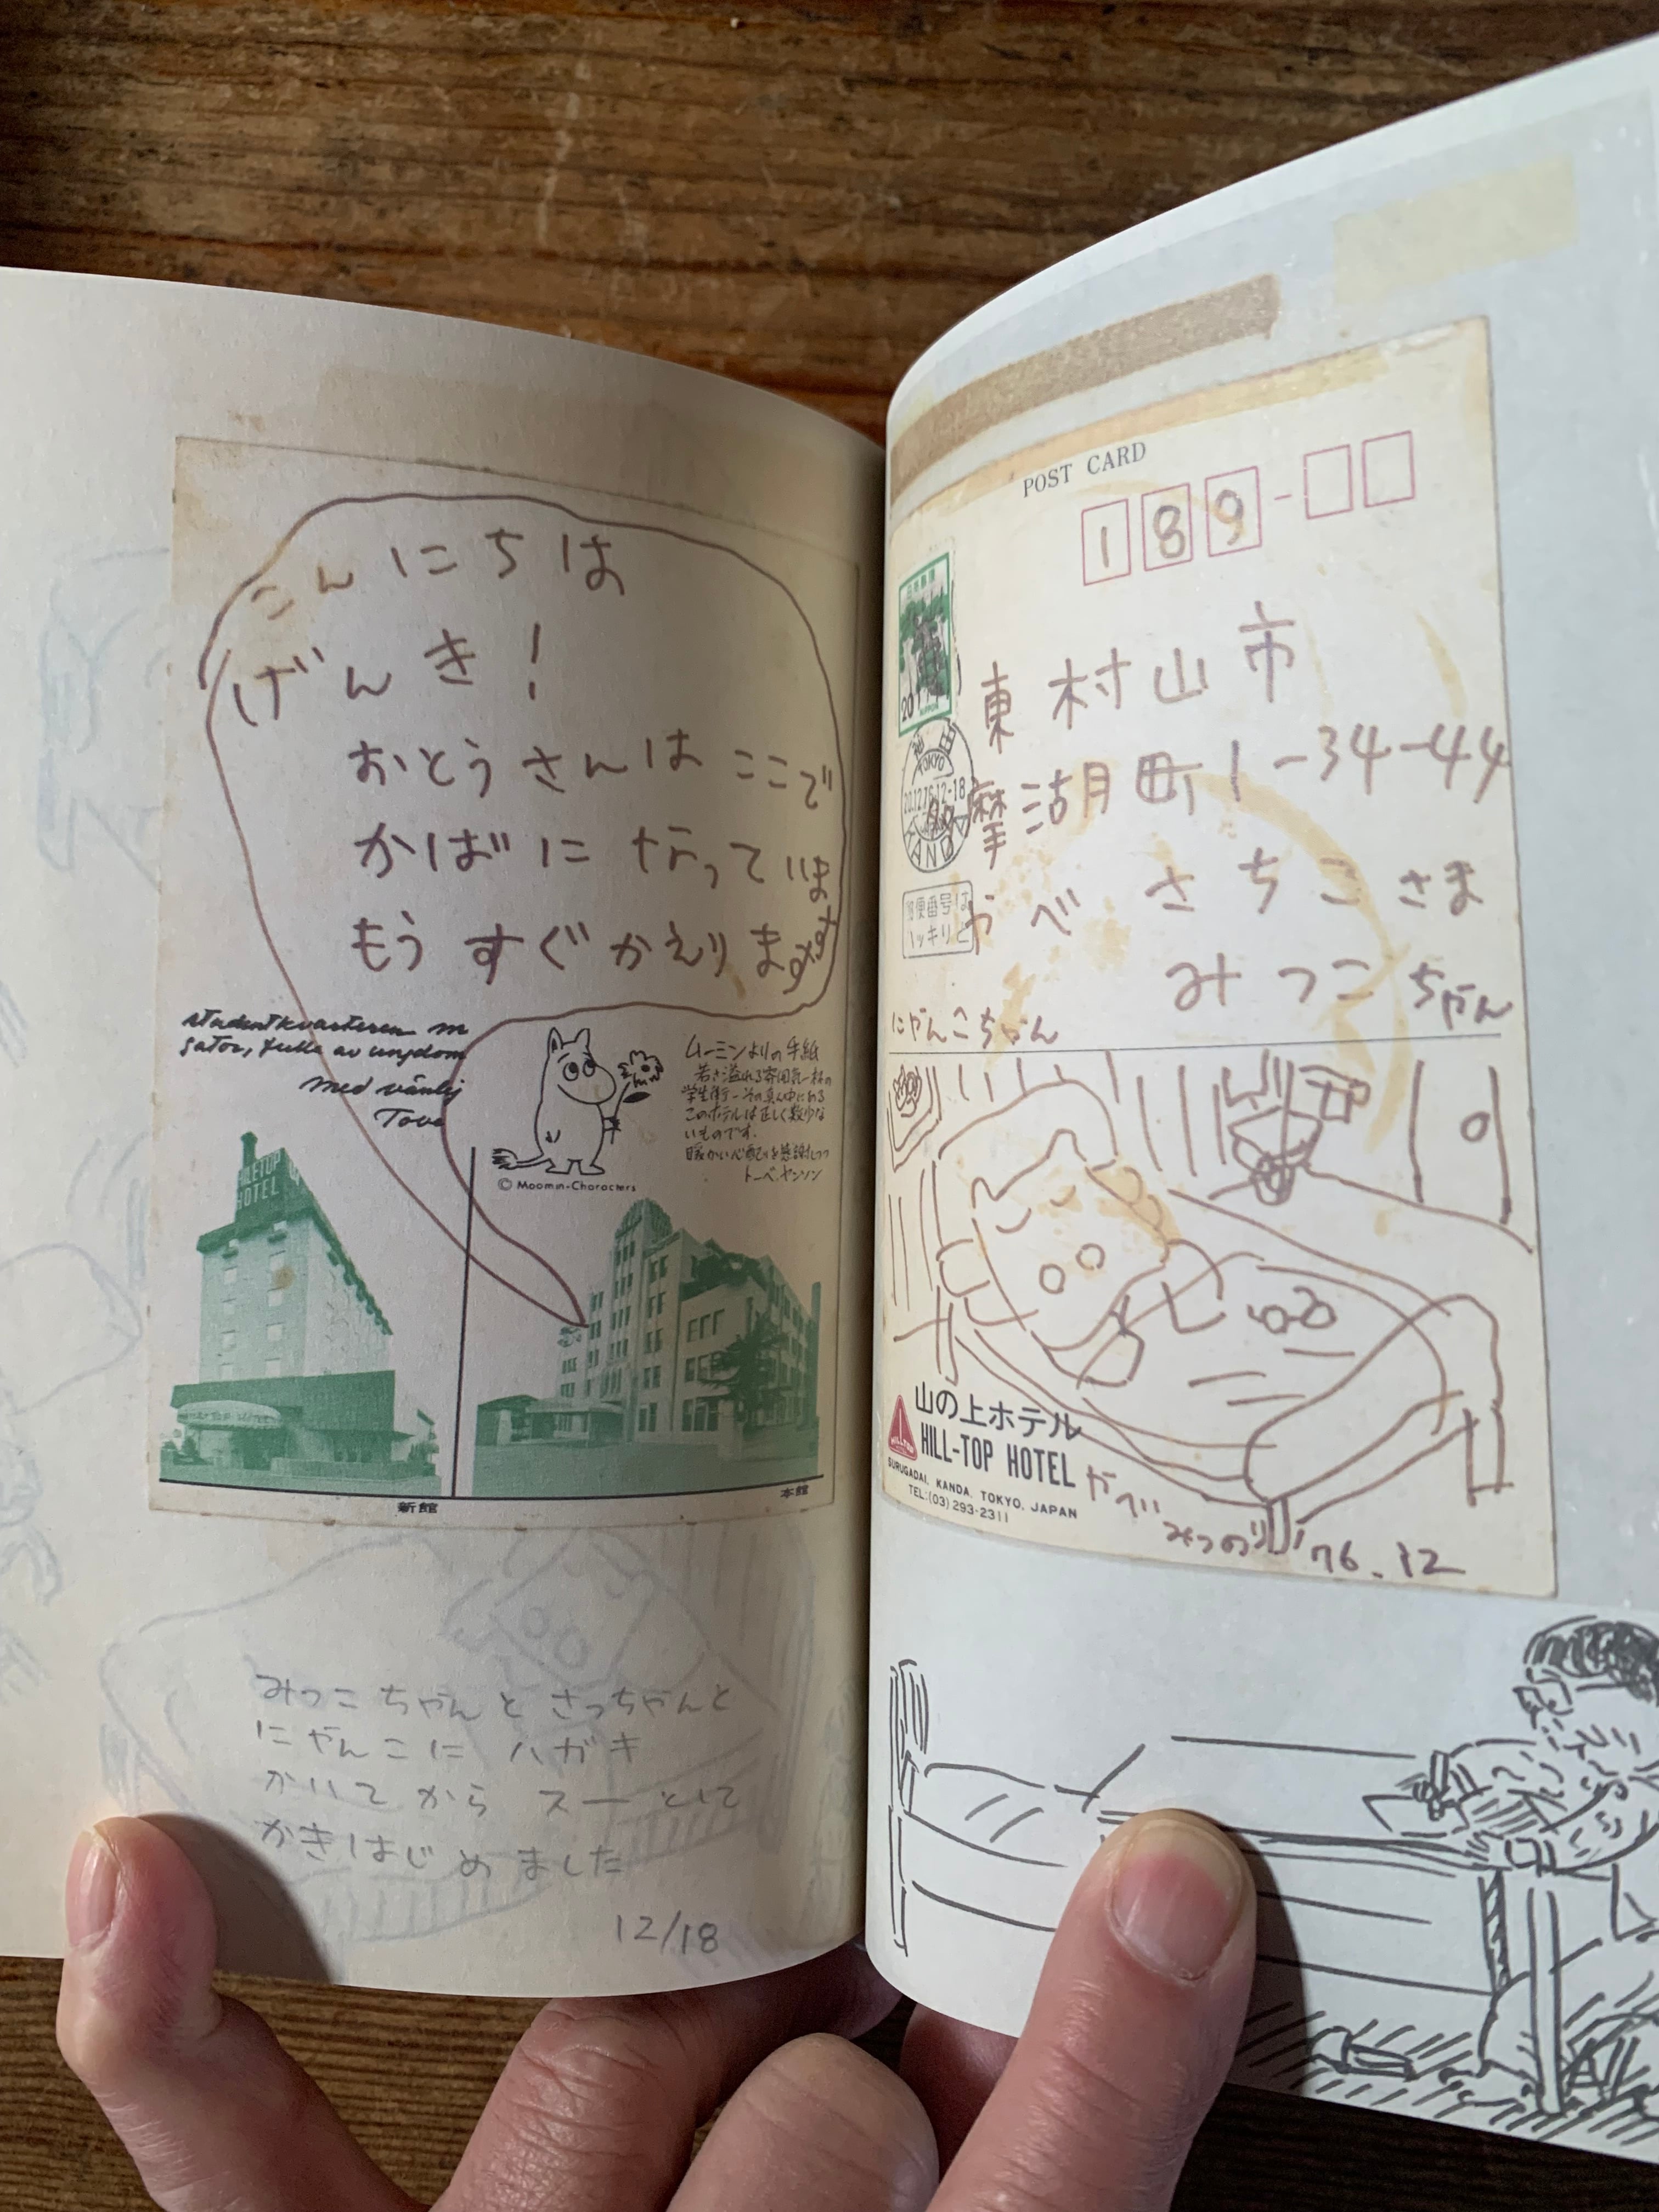 こんにちは
げんき!
おとうさんは ここで
かばに なって います
もう すぐ かえります
studentkvarteren
med vänlig
Tove
ムーミンよりの手紙
若さ溢れる雰囲気一杯の
学生街-その真ん中にある
このホテルは正しく数少な
いものです.
暖かい心配りを感謝しつつ
トーベ.ヤンソン
© Moomin-Characters
HILLTOP
HOTEL
HILLTOP HOTEL
新館
本館
みっこちゃんと さっちゃんと
にゃんこに ハガキ
かいてから スーとして
かきはじめました
12/18
POST CARD
189-
20
NIPPON
神田
TOKYO
20.12.76.12-18
KANDA
郵便番号は
ハッキリと
東村山市
多摩湖町1-34-44
かべ さちこさま
みつこちゃん
にゃんこちゃん
山の上ホテル
HILLTOP
HILL-TOP HOTEL
SURUGADAI, KANDA, TOKYO, JAPAN
TEL:(03) 293-2311
かべ
みつのり
'76.12